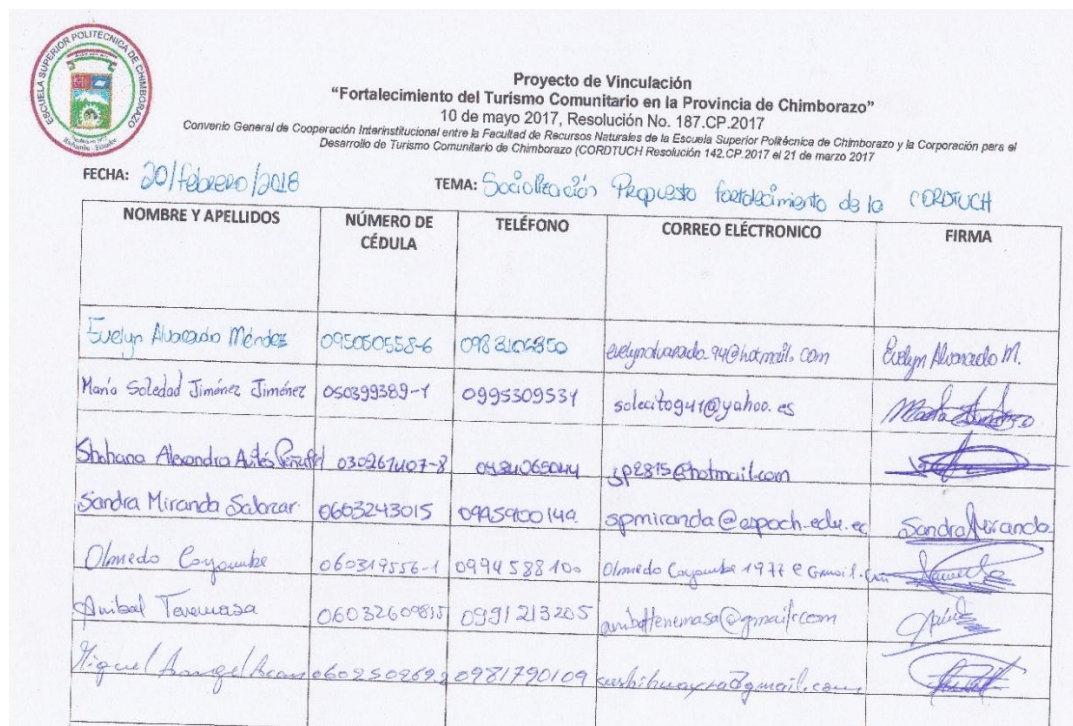 ESCUELA SUPERIOR POLITECNICA DE CHIMBORAZO
Riobamba - Ecuador
Proyecto de Vinculación
“Fortalecimiento del Turismo Comunitario en la Provincia de Chimborazo”
10 de mayo 2017, Resolución No. 187.CP.2017
Convenio General de Cooperación Interinstitucional entre la Facultad de Recursos Naturales de la Escuela Superior Politécnica de Chimborazo y la Corporación para el
Desarrollo de Turismo Comunitario de Chimborazo (CORDTUCH Resolución 142.CP.2017 el 21 de marzo 2017
FECHA: 20/febrero/2018 TEMA: Socialización Propuesta fortalecimiento de la CORDTUCH
NOMBRE Y APELLIDOS NÚMERO DE CÉDULA TELÉFONO CORREO ELÉCTRONICO FIRMA
Evelyn Alvarado Méndez 095050558-6 evelynalvarado.94@hotmail.com Evelyn Alvarado M.
María Soledad Jiménez Jiménez 050399389-1 0995309531 solecito941@yahoo.es
Alexandra 030261407-8 sp2815@hotmail.com
Sandra Miranda Salazar 0603243015 spmiranda@espoch.edu.ec Sandra Miranda
Olmedo Cayambe 060319556-1 0994588100 Olmedo Cayambe 1977@Gmail.Com
Anibal Tenemasa 06032609815 0991213205 anibaltenemasa@gmail.com
Miguel Angel 0981790109